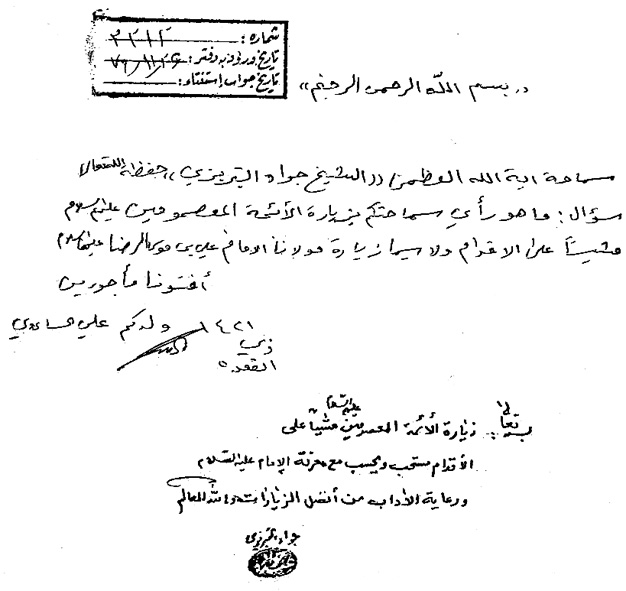 شماره: ۲۲۱۲
تاریخ ورود به دفتر:
تاریخ جواب استفتاء:
«بسم الله الرحمن الرحیم»
سماحة آیة الله العظمى «الشیخ جواد التبریزي» حفظه الله تعالى
سؤال: ما هو رأي سماحتكم بزيارة الأئمة المعصومين عليهم السلام
مشياً على الاقدام ولا سيما زيارة مولانا الامام علي بن موسى الرضا عليهما السلام
أفتونا مأجورين
ولدكم علي الساعدي
١٤٢١
ذي
القعدة
بسمه تعالى
زيارة الأئمة المعصومين عليهم السلام مشياً على
الأقدام مستحب ويحسب مع معرفة الإمام عليه السلام
ورعاية الآداب من أفضل الزيارات والله العالم
جواد تبريزي